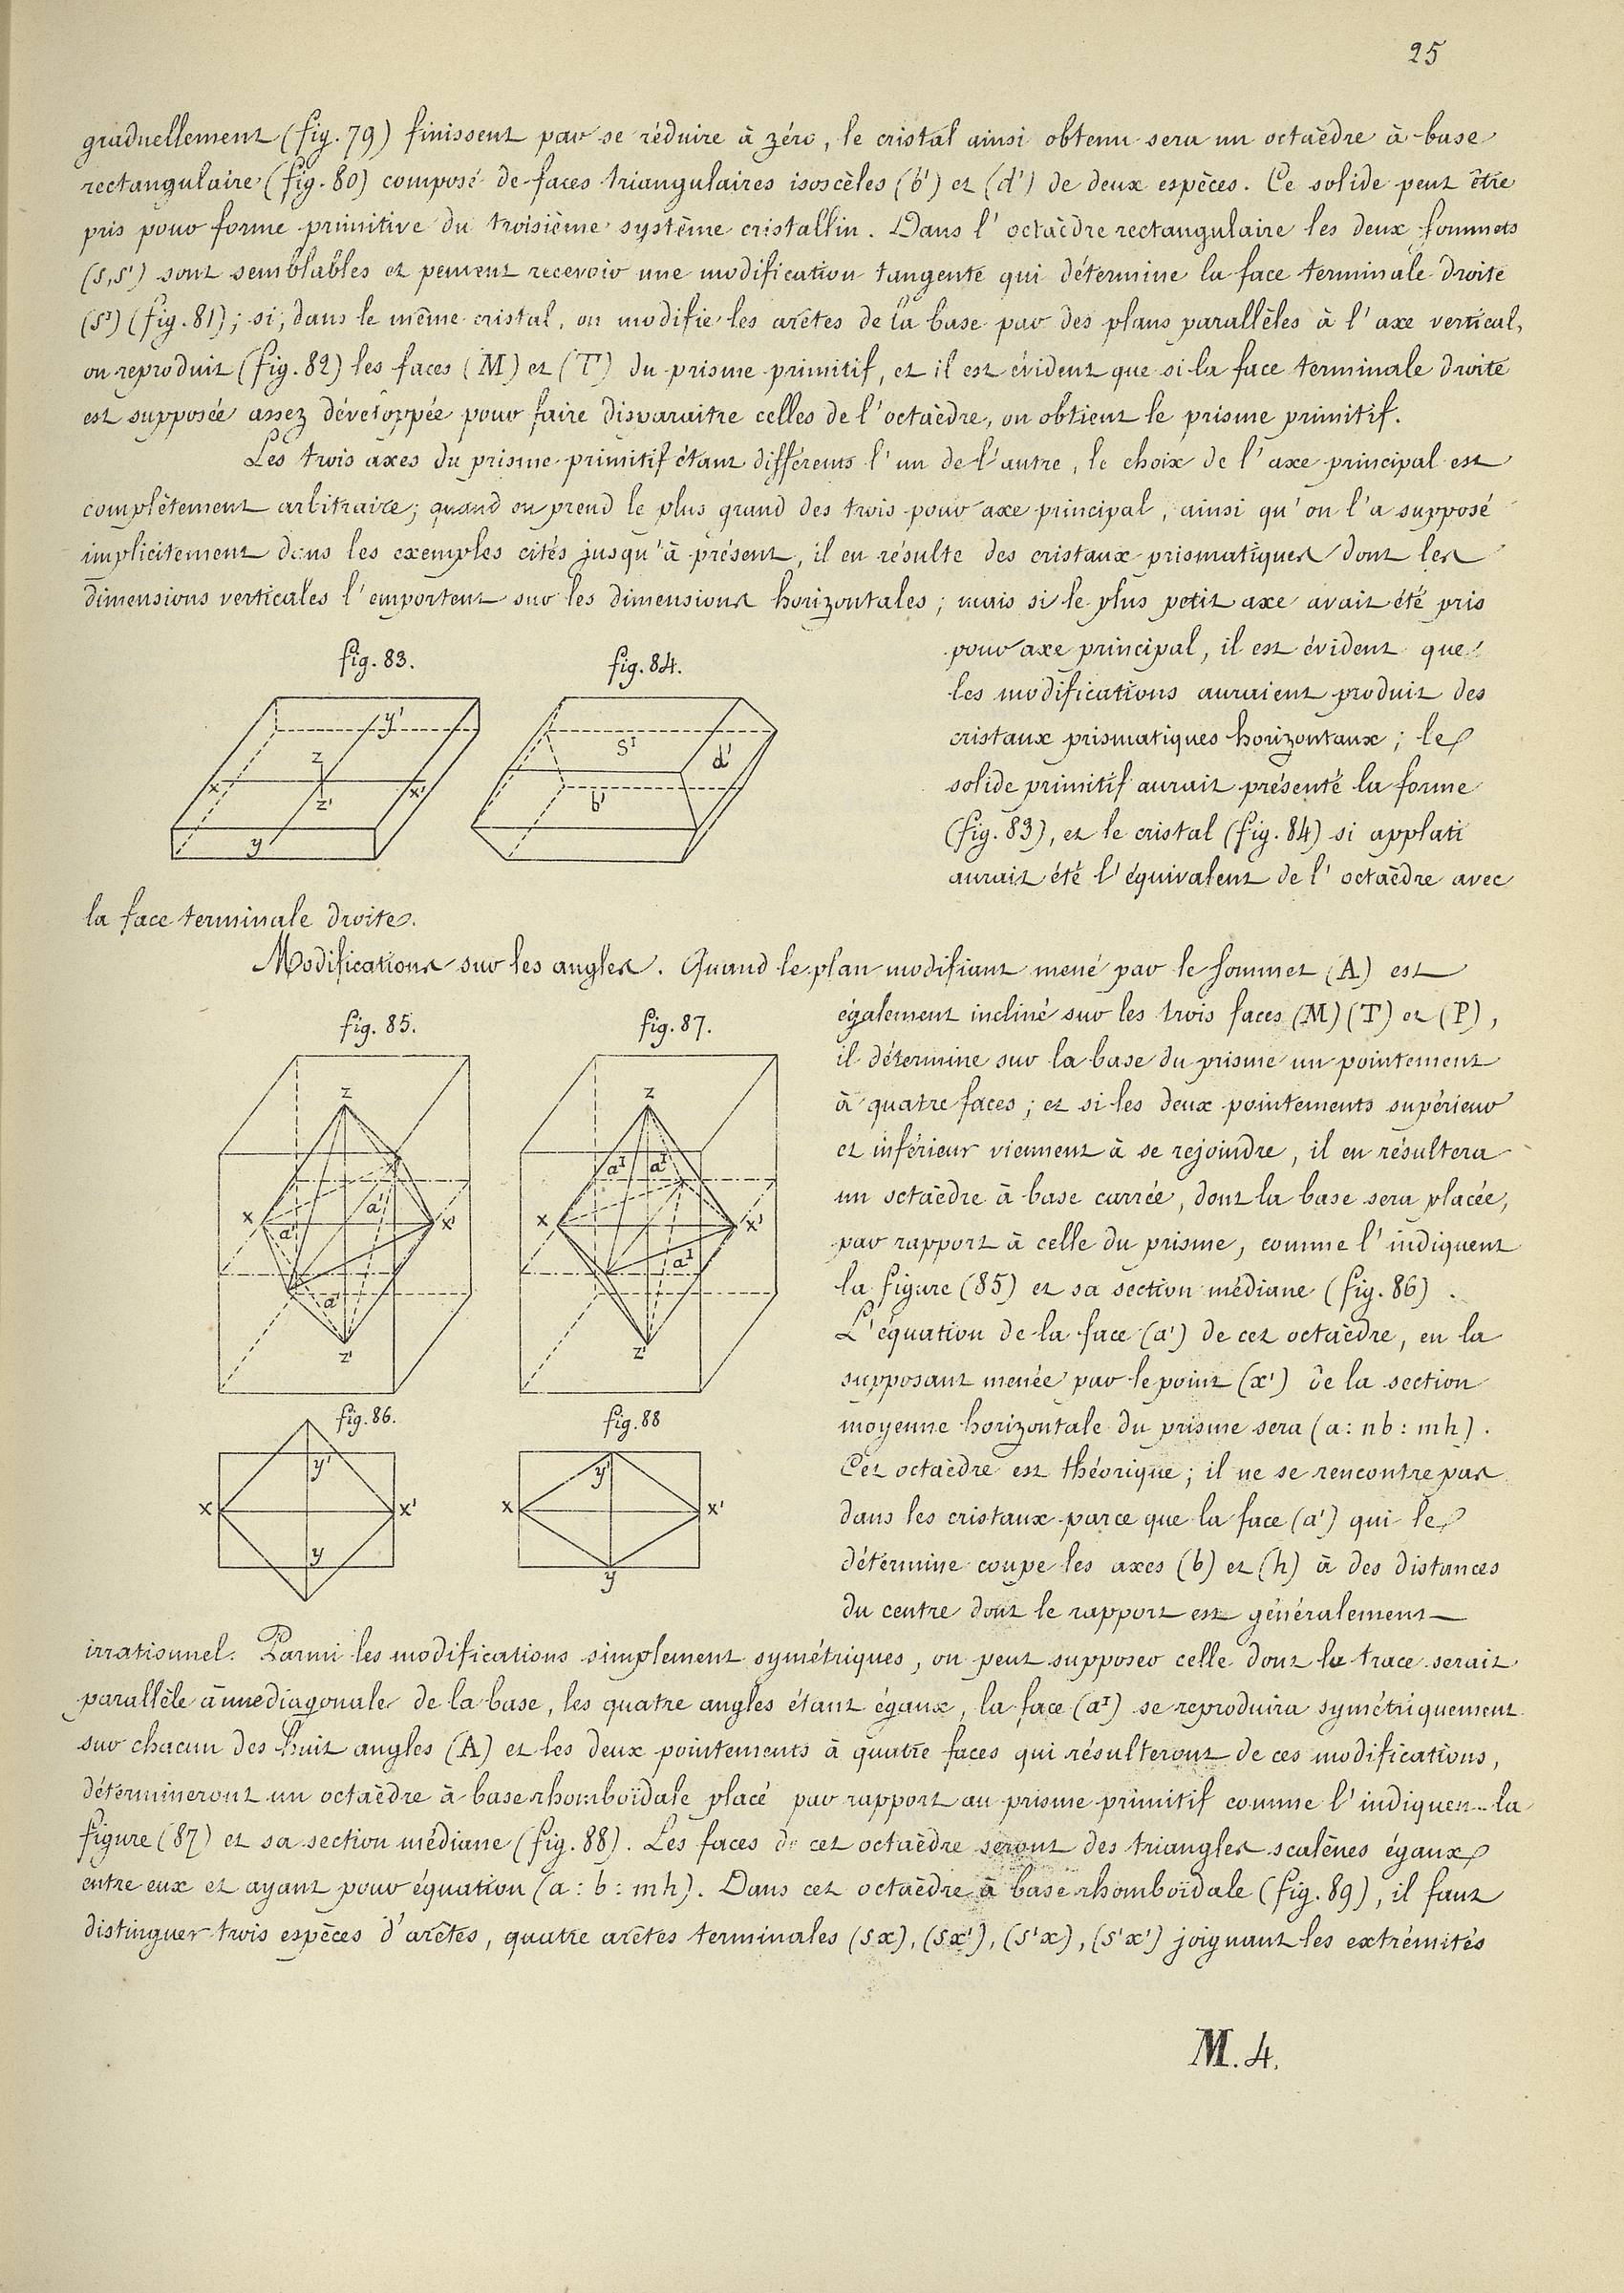 25
graduellement (fig. 79) finissent par se réduire à zéro, le cristal ainsi obtenu sera un octaèdre à base
rectangulaire (fig. 80) composé de faces triangulaires isoscèles (b') et (d') de deux espèces. Ce solide peut être
pris pour forme primitive du troisième système cristallin. Dans l'octaèdre rectangulaire les deux sommets
(s, s') sont semblables et peuvent recevoir une modification tangente qui détermine la face terminale droite
(s¹) (fig. 81) ; si, dans le même cristal, on modifie les arêtes de la base par des plans parallèles à l'axe vertical,
on reproduit (fig. 82) les faces (M) et (T) du prisme primitif, et il est évident que si la face terminale droite
est supposée assez développée pour faire disparaitre celles de l'octaèdre, on obtient le prisme primitif.
Les trois axes du prisme primitif étant différents l'un de l'autre, le choix de l'axe principal est
complètement arbitraire ; quand on prend le plus grand des trois pour axe principal, ainsi qu'on l'a supposé
implicitement dans les exemples cités jusqu'à présent, il en résulte des cristaux prismatiques dont les
dimensions verticales l'emportent sur les dimensions horizontales ; mais si le plus petit axe avait été pris
pour axe principal, il est évident que
les modifications auraient produit des
cristaux prismatiques horizontaux ; le
solide primitif aurait présenté la forme
(fig. 83), et le cristal (fig. 84) si applati
aurait été l'équivalent de l'octaèdre avec
la face terminale droite.
fig. 83.
y'
z
x
z'
x'
y
fig. 84.
s¹
d'
b'
Modifications sur les angles. Quand le plan modifiant mené par le sommet (A) est
également incliné sur les trois faces (M) (T) et (P),
il détermine sur la base du prisme un pointement
à quatre faces ; et si les deux pointements supérieur
et inférieur viennent à se rejoindre, il en résultera
un octaèdre à base carrée, dont la base sera placée,
par rapport à celle du prisme, comme l'indiquent
la figure (85) et sa section médiane (fig. 86).
L'équation de la face (a') de cet octaèdre, en la
supposant menée par le point (x') de la section
moyenne horizontale du prisme sera (a : nb : mh).
Cet octaèdre est théorique ; il ne se rencontre pas
dans les cristaux parce que la face (a') qui le
détermine coupe les axes (b) et (h) à des distances
du centre dont le rapport est généralement
fig. 85.
z
a'
x
x'
a'
a'
z'
fig. 87.
z
a¹ a¹
x
x'
a¹
z'
fig. 86.
y'
x
x'
y
fig. 88
y'
x
x'
y
irrationnel. Parmi les modifications simplement symétriques, on peut supposer celle dont la trace serait
parallèle à une diagonale de la base, les quatre angles étant égaux, la face (a¹) se reproduira symétriquement
sur chacun des huit angles (A) et les deux pointements à quatre faces qui résulteront de ces modifications,
détermineront un octaèdre à base rhomboïdale placé par rapport au prisme primitif comme l'indiquent la
figure (87) et sa section médiane (fig. 88). Les faces de cet octaèdre seront des triangles scalènes égaux
entre eux et ayant pour équation (a : b : mh). Dans cet octaèdre à base rhomboïdale (fig. 89), il faut
distinguer trois espèces d'arêtes, quatre arêtes terminales (sx), (sx'), (s'x), (s'x') joignant les extrémités
M. 4.